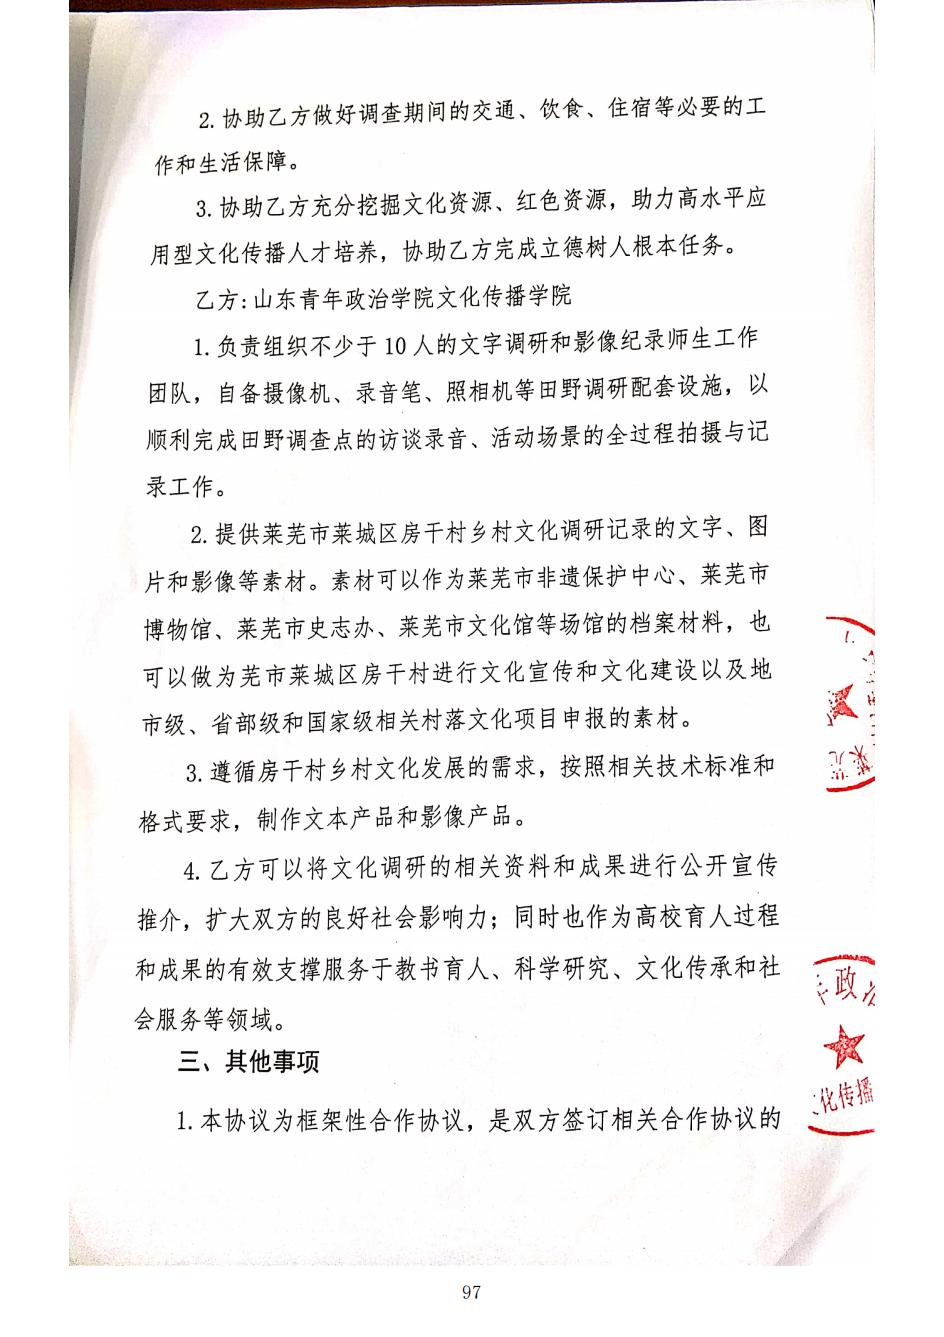 2.协助乙方做好调查期间的交通、饮食、住宿等必要的工
作和生活保障。
3.协助乙方充分挖掘文化资源、红色资源，助力高水平应
用型文化传播人才培养，协助乙方完成立德树人根本任务。
乙方:山东青年政治学院文化传播学院
1.负责组织不少于10人的文字调研和影像纪录师生工作
团队，自备摄像机、录音笔、照相机等田野调研配套设施，以
顺利完成田野调查点的访谈录音、活动场景的全过程拍摄与记
录工作。
2.提供莱芜市莱城区房干村乡村文化调研记录的文字、图
片和影像等素材。素材可以作为莱芜市非遗保护中心、莱芜市
博物馆、莱芜市史志办、莱芜市文化馆等场馆的档案材料，也
可以做为芜市莱城区房干村进行文化宣传和文化建设以及地
市级、省部级和国家级相关村落文化项目申报的素材。
3.遵循房干村乡村文化发展的需求，按照相关技术标准和
格式要求，制作文本产品和影像产品。
4.乙方可以将文化调研的相关资料和成果进行公开宣传
推介，扩大双方的良好社会影响力；同时也作为高校育人过程
和成果的有效支撑服务于教书育人、科学研究、文化传承和社
会服务等领域。
三、其他事项
1.本协议为框架性合作协议，是双方签订相关合作协议的
莱芜
政
化传播
97